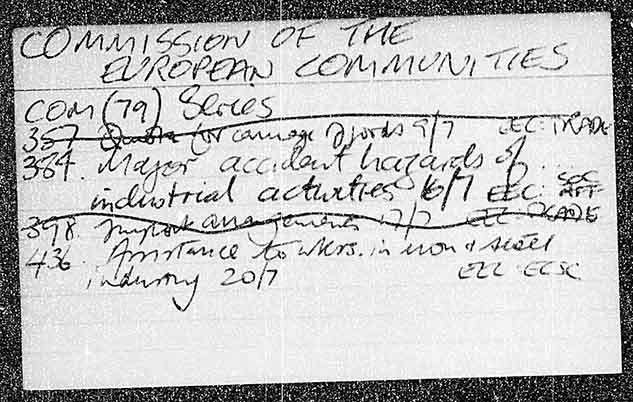 COMMISSION OF THE
EUROPEAN COMMUNITIES
COM (79) Series
357 Quota for carriage of goods 9/7 EEC: TRADE
384. Major accident hazards of ....
industrial activities 16/7 EEC: SOC AFF
398. Import arrangements 17/7 EEC TRADE
436. Assistance to wkrs. in iron & steel
industry 20/7 EEC: ECSC